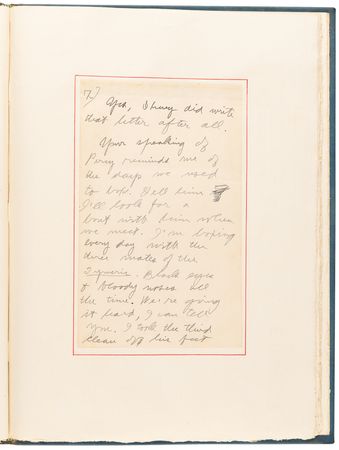 7)
Yes, I may did write
that letter after all.
Your speaking of
Percy reminds me of
the days we used
to box. Tell him
I'll look for a
bout with him when
we meet. I'm boxing
every day with the
three mates of the
Tymeric. Black eyes
& bloody noses all
the time. We're going
it hard, I can tell
you. I took the third
clean off his feet